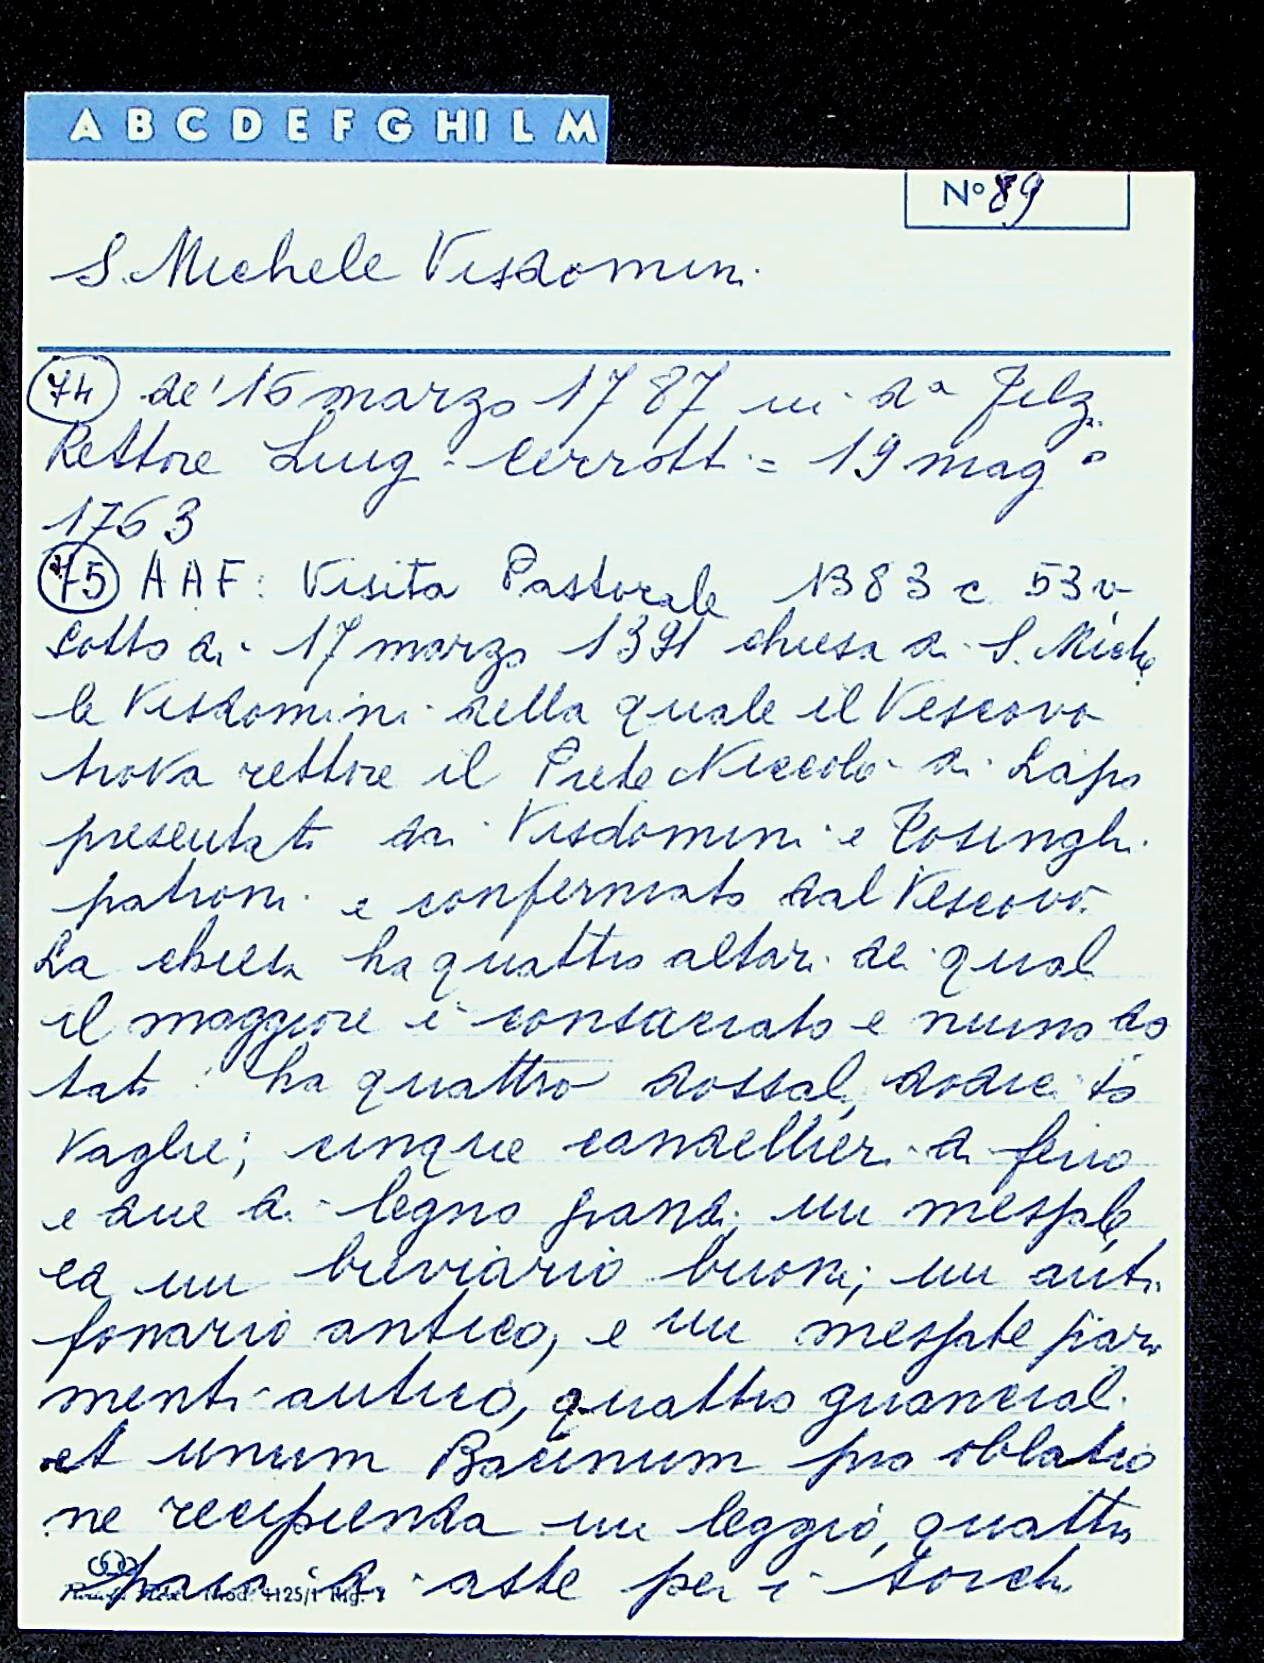 A B C D E F G HI L M
N° 89
S. Michele Visdomini
74 de' 16 marzo 1787 in dª Filz.
Rettore Luigi Cerroti = 19 mag°
1763
75 AAF: Visita Pastorale 1383 c 53v
sotto di 17 marzo 1391 chiesa di S. Miche
le Visdomini nella quale il Vescovo
trova rettore il Prete Niccolò di Lapo
presentato dai Visdomini e Tosinghi
patroni e confermato dal Vescovo.
La chiesa ha quattro altari dei quali
il maggiore è consacrato e niuno do
tato ha quattro dossali, dodici to
vaglie; cinque candellieri di ferro
e due di legno grandi, un messale,
ed un breviario buoni; un anti
fonario antico, e un messale pari
menti antico, quattro guanciali
et unum Bacinum pro oblatio
ne recipienda un leggio, quattro
paia di aste per i torchi
Mod. 1125/1 Mg.